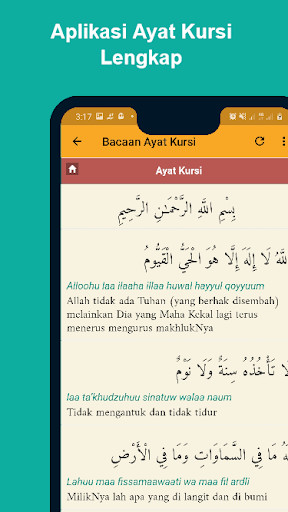 Aplikasi Ayat Kursi
Lengkap
3:17
Bacaan Ayat Kursi
Ayat Kursi
بِسْمِ اللَّهِ الرَّحْمَـٰنِ الرَّحِيمِ
اللَّهُ لَا إِلَهَ إِلَّا هُوَ الْحَيُّ الْقَيُّومُ
Alloohu laa ilaaha illaa huwal hayyul qoyyuum
Allah tidak ada Tuhan (yang berhak disembah)
melainkan Dia yang Maha Kekal lagi terus
menerus mengurus makhlukNya
تَأْخُذُهُ سِنَةٌ وَلَا نَوْمٌ
laa ta'khudzuhuu sinatuw walaa naum
Tidak mengantuk dan tidak tidur
مَا فِي السَّمَاوَاتِ وَمَا فِي الْأَرْضِ
Lahuu maa fissamaawaati wa maa fil ardli
MilikNya lah apa yang di langit dan di bumi